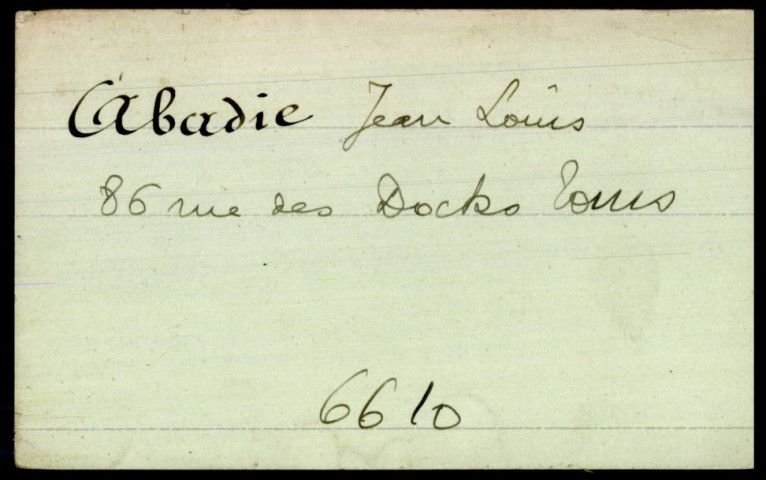 Abadie Jean Louis
86 rue des Docks Tours
6610